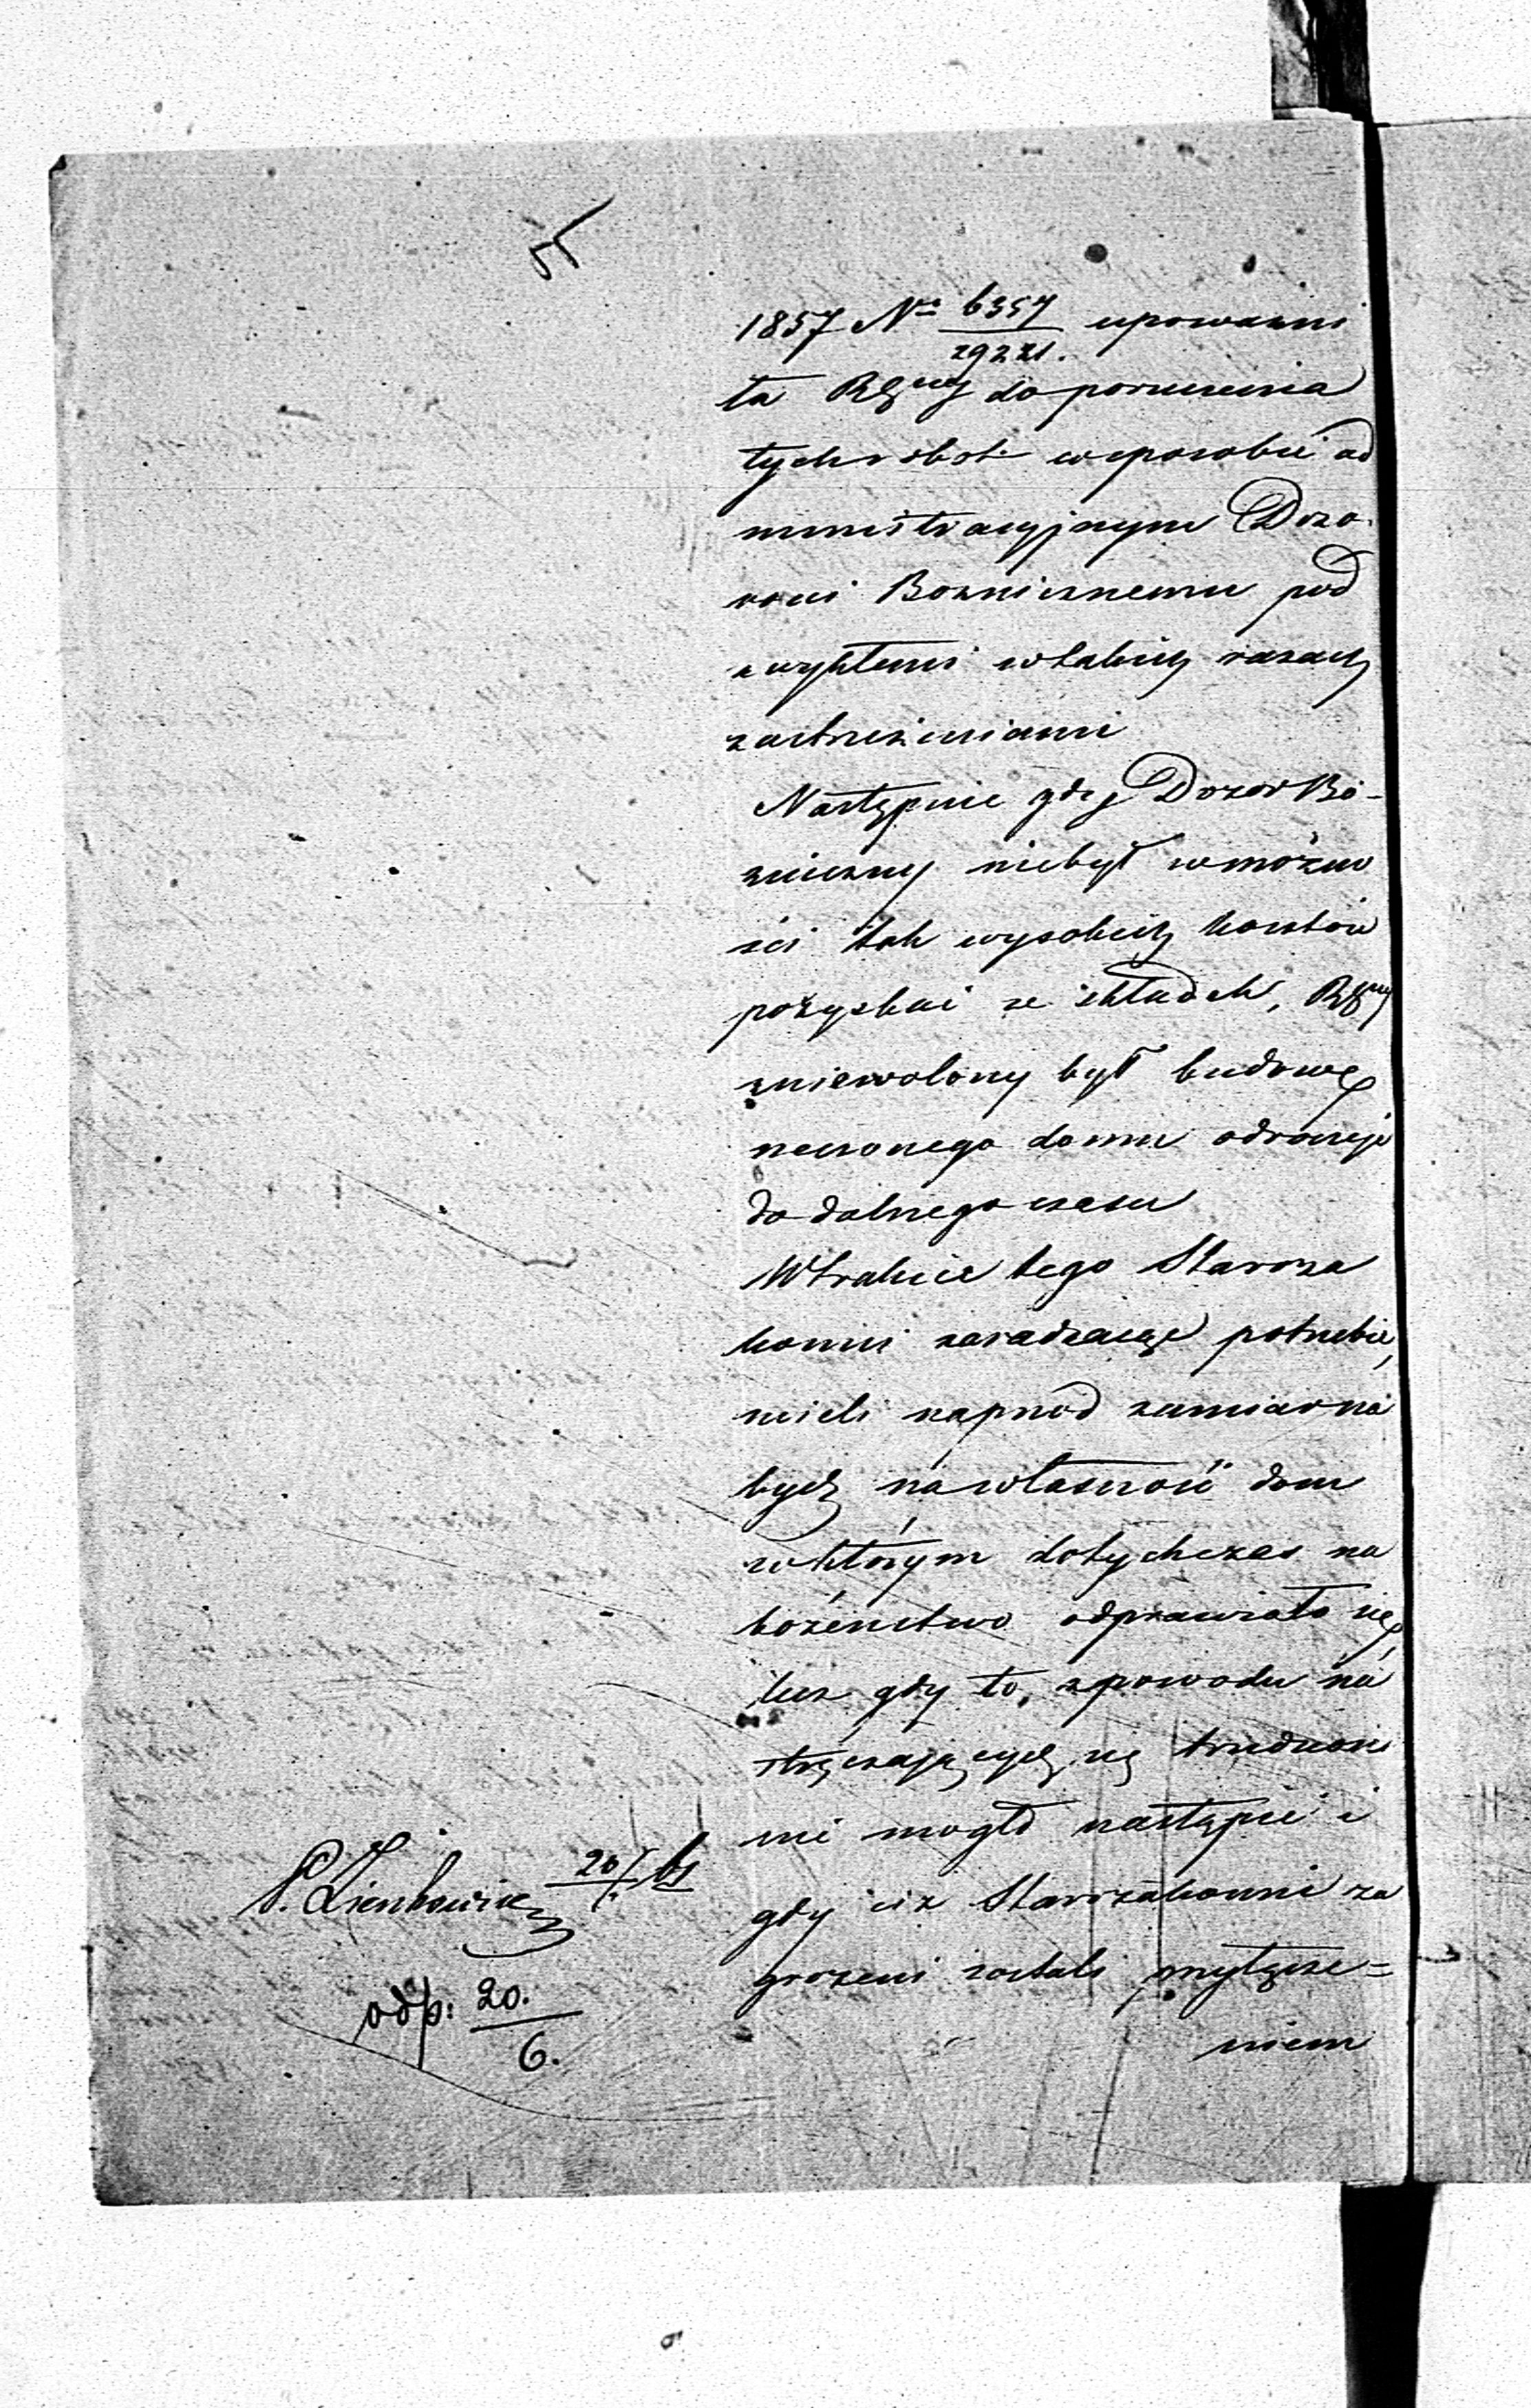 1857 Nr 6357/29221. upoważni
ła RGny do poruczenia
tych robót w sposobie ad
ministracyjnym Dozo-
rowi Bożnicznemu pod
zwykłemi w takich razach
zastrzeżeniami
Następnie gdy Dozór Bó-
żniczny niebył w możno
ści tak wysokich kosztów
pozyskać ze składek, RGny
zniewolony był budowę
rzeczonego domu odroczyć
do dalnego czasu
W trakcie tego Staroza
konni zaradzając potrzebie,
mieli naprzód zamiar na
bydź na własność dom
w którym dotychczas na
bożeństwo odprawiało się,
lecz gdy to, z powodu na
stręczających się trudności
nie mogło nastąpić i
gdy ciż Starozakonni za
grożeni zostali przytęcze=
niem
odp: 20./6.